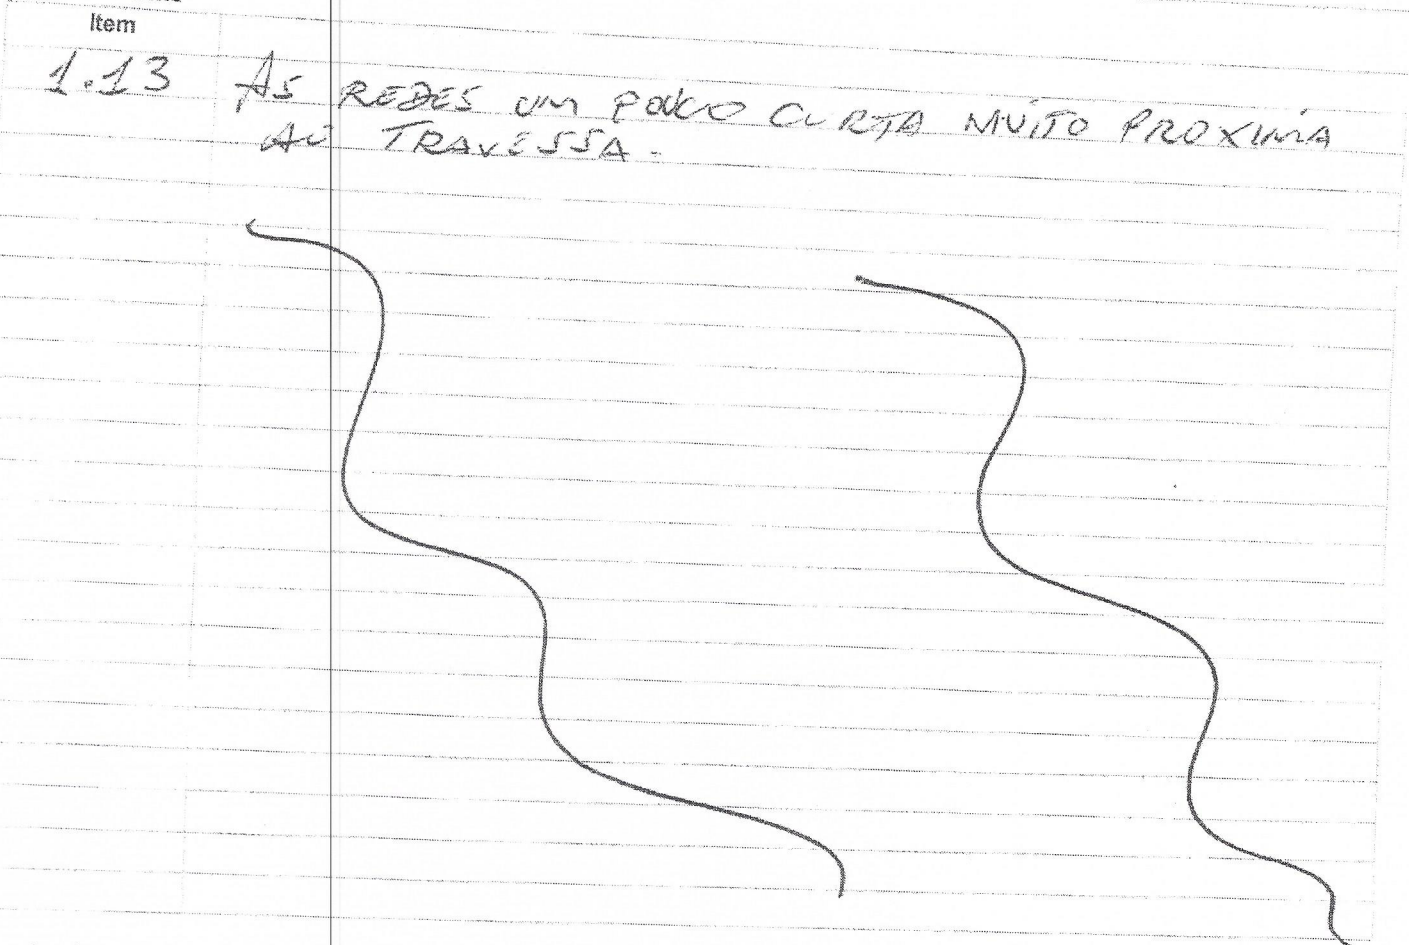 Item
1.13 AS REDES UM POUCO CURTA MUITO PROXIMA
AO TRAVESSA.